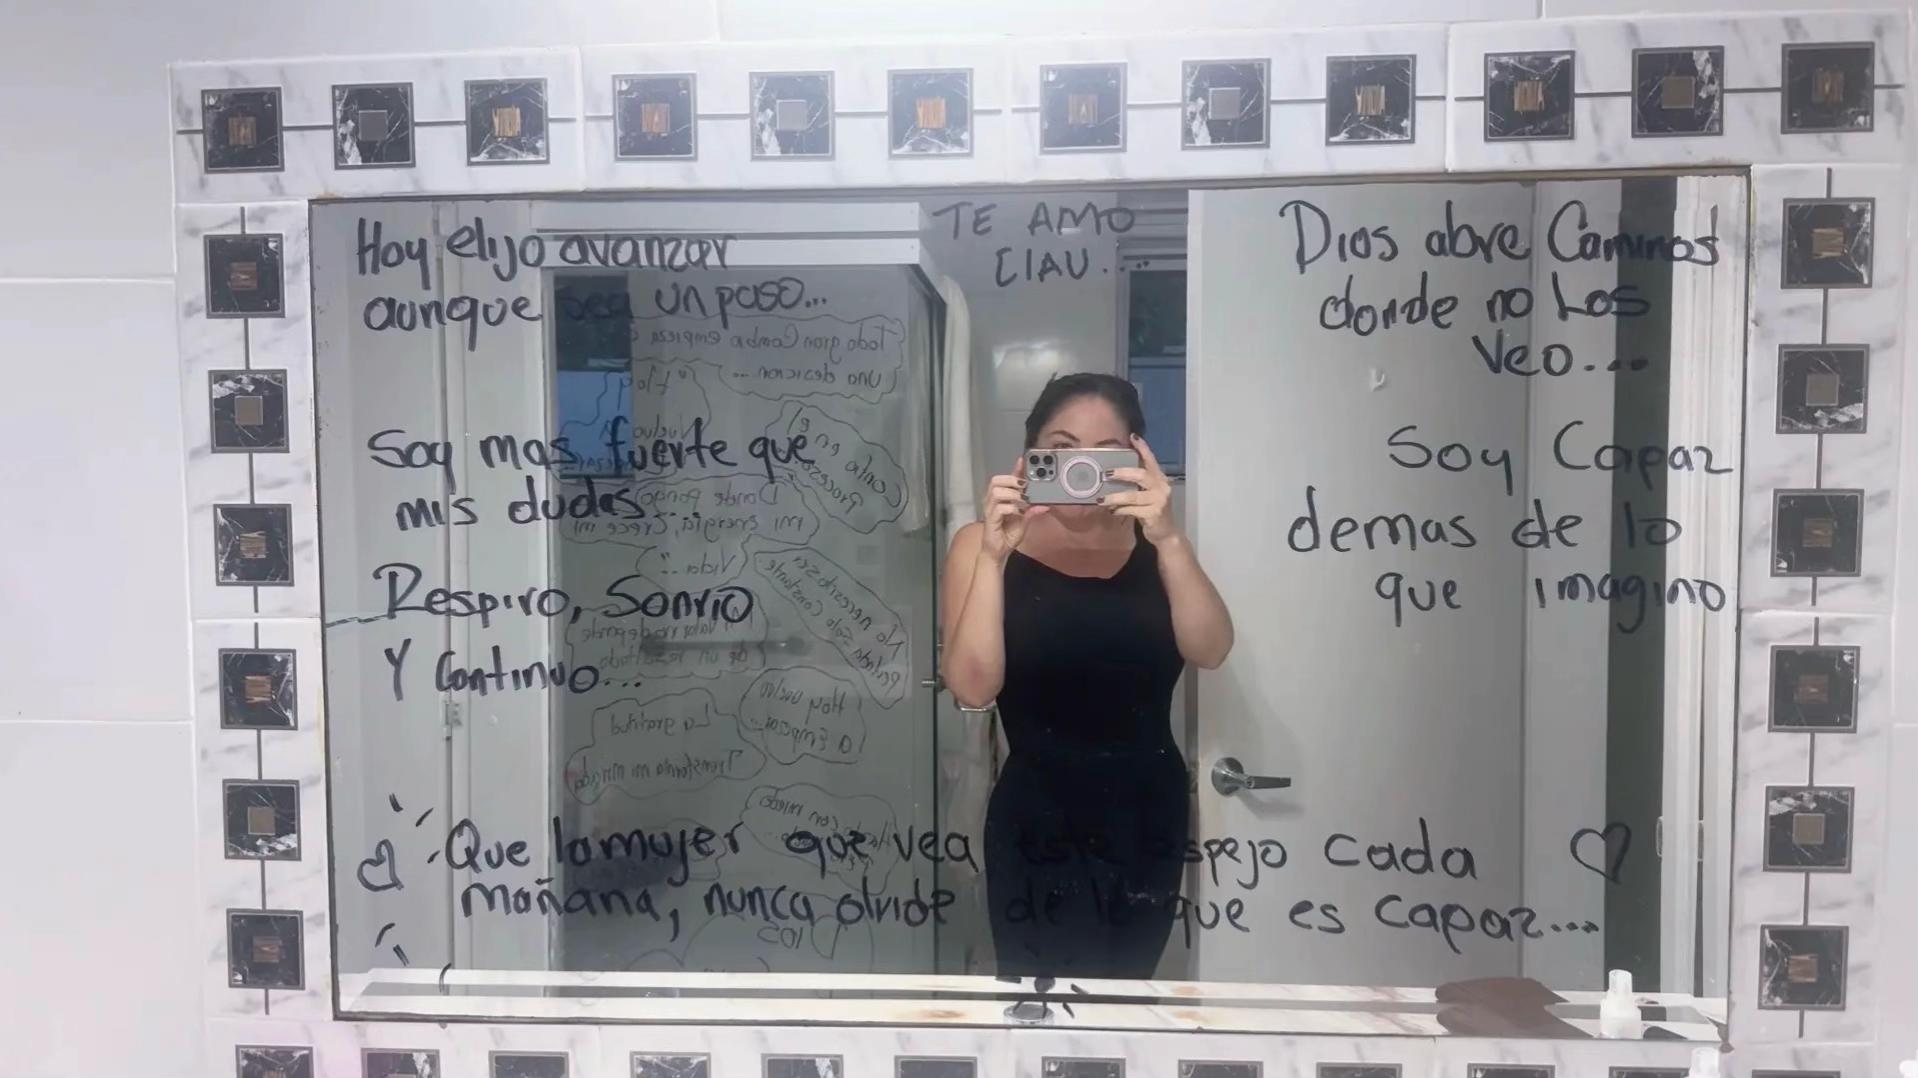 Hoy elijo avanzar
aunque sea un paso...
Soy mas fuerte que
mis dudas...
Respiro, Sonrío
Y Continuo...
TE AMO
CIAU...
Dios abre Caminos
donde no los
veo...
Soy Capaz
demas de lo
que imagino
Que la mujer que vea este espejo cada
mañana, nunca olvide de lo que es capaz...
Todo gran Cambio empieza
una desicion...
"Hoy
vuelvo
Confia en el
Proceso
Donde pongo
mi energia, Crece mi
Vida"
No necesito ser
Solo Constante
valor no depende
de un resultado
Hoy vuelvo
a Empezar...
La gratitud
Transforma mi mirada
con miedo